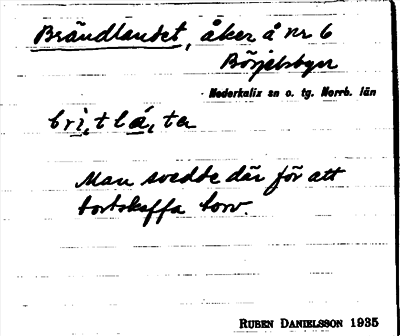 Brändlandet, åker å nr 6
Börjelsbyn
Nederkalix sn o. tg. Norrb. län
brì, t l á, ta
Man svedde där för att
bortskaffa torv.
RUBEN DANIELSSON 1935